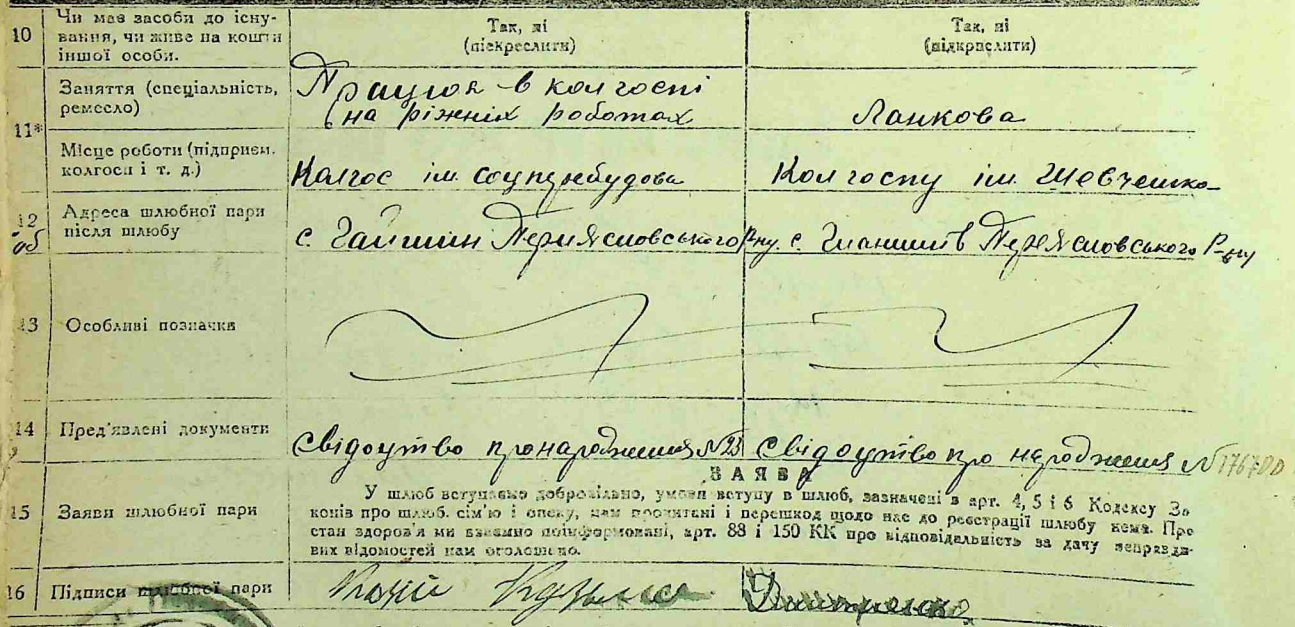 10 Чи має засоби до існу-
вання, чи живе на кошти
іншої особи.
Так, ні
(підкреслити)
Так, ні
(підкреслити)
11*
Заняття (спеціальність,
ремесло)
Працюя в колгоспі
на ріжніх роботах
Ланкова
Місце роботи (підприєм.
колгосп і т. д.)
Колгос ім. соцперебудова
Колгоспу ім. Шевченка
12 Адреса шлюбної пари
після шлюбу
с. Гайшин Переясловського Р-ну
с. Гланишів Переясловського Р-ну
13 Особливі позначки
14 Пред'явлені документи
Свідоцтво про народження № 23
Свідоцтво про народження №
ЗАЯВА
15 Заяви шлюбної пари
У шлюб вступаємо добровільно, умови вступу в шлюб, зазначені в арт. 4, 5 і 6 Кодексу За
конів про шлюб, сім'ю і опеку, нам прочитані і перешкод щодо нас до реєстрації шлюбу нема. Про
стан здоров'я ми взаємно поінформовані, арт. 88 і 150 КК про відповідальність за дачу неправди-
вих відомостей нам оголошено.
16 Підписи шлюбної пари
Козій Кузьма
Дмитренко